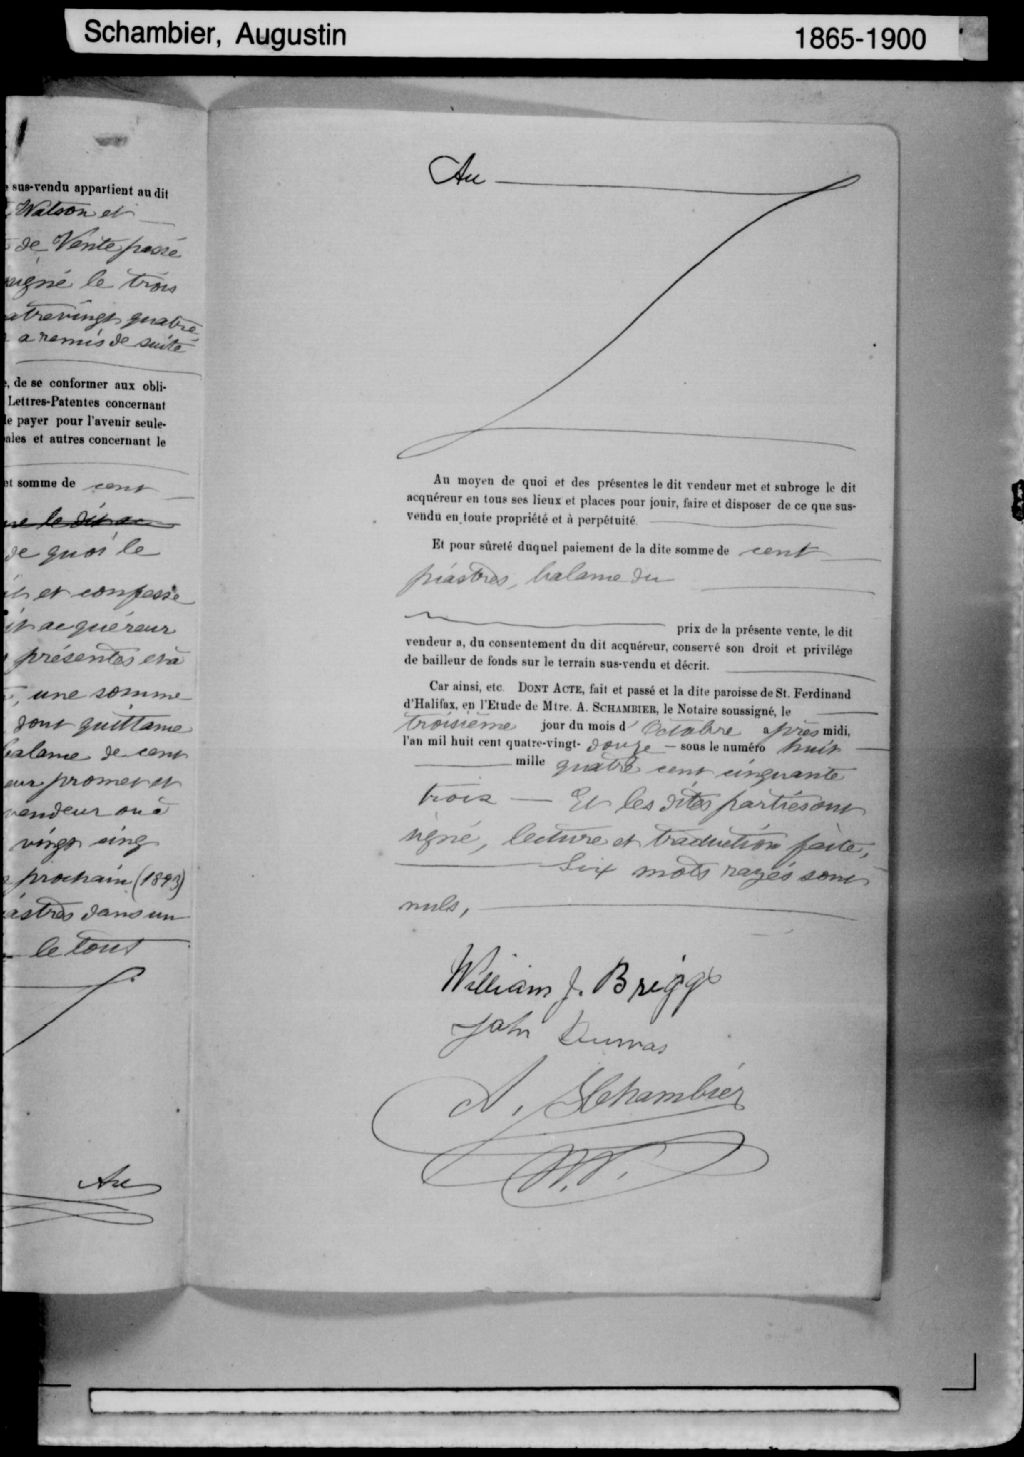 Schambier, Augustin 1865-1900
sus-vendu appartient au dit
Watson et
de Vente passé
le trois
quatre
a remis de suite
, de se conformer aux obli-
Lettres-Patentes concernant
payer pour l'avenir seule-
et autres concernant le
et somme de cent
le dit
de quoi le
et confesse
acquéreur
présentes et à
, une somme
dont quittance
balance de cent
promet et
vendeur ou à
vingt cinq
prochain (1893)
dans un
le tout
Au
Au
Au moyen de quoi et des présentes le dit vendeur met et subroge le dit
acquéreur en tous ses lieux et places pour jouir, faire et disposer de ce que sus-
vendu en toute propriété et à perpétuité.
Et pour sûreté duquel paiement de la dite somme de cent
piastres, balance du
prix de la présente vente, le dit
vendeur a, du consentement du dit acquéreur, conservé son droit et privilége
de bailleur de fonds sur le terrain sus-vendu et décrit.
Car ainsi, etc. DONT ACTE, fait et passé et la dite paroisse de St. Ferdinand
d'Halifax, en l'Etude de Mtre. A. SCHAMBIER, le Notaire soussigné, le
troisième jour du mois d'Octobre après midi,
l'an mil huit cent quatre-vingt- douze — sous le numéro huit
mille quatre cent cinquante
trois — Et les dites parties ont
signé, lecture et traduction faite,
Six mots rayés sont
nuls,
William J. Briggs
John Dumas
A. Schambier
N.P.